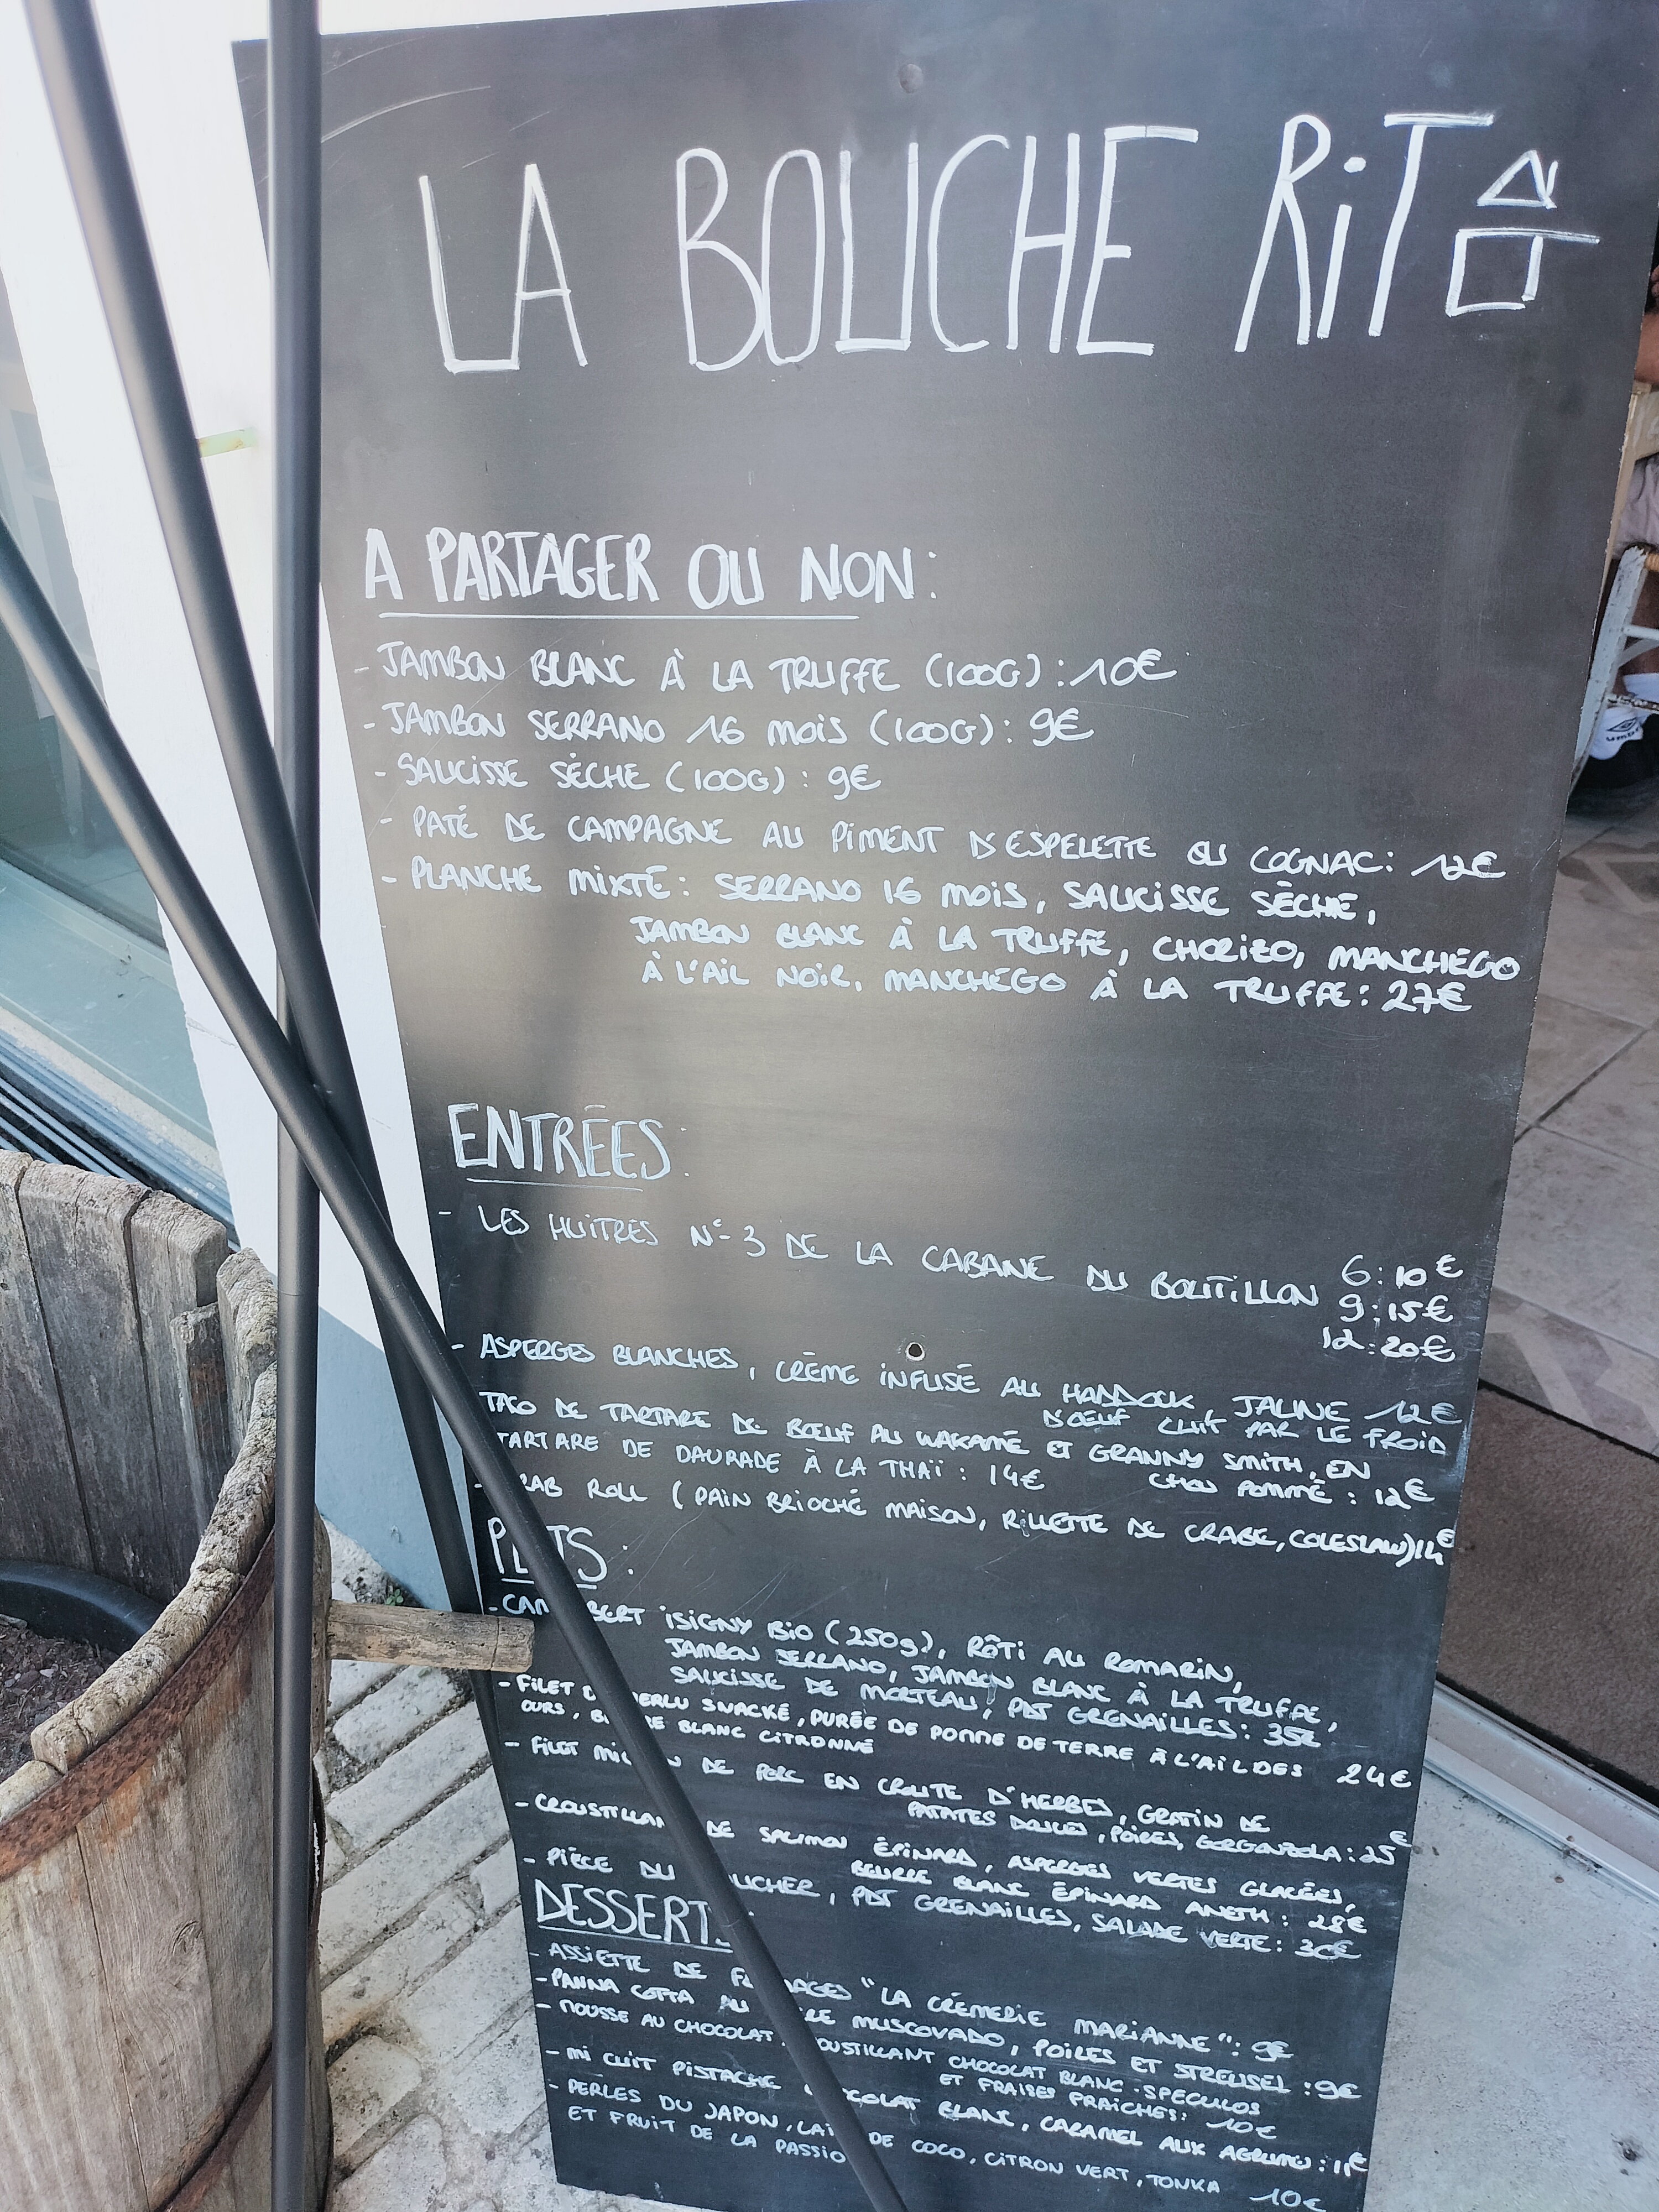 LA BOUCHE RiT
A PARTAGER OU NON:
- JAMBON BLANC À LA TRUFFE (100G) : 10€
- JAMBON SERRANO 16 MOiS (100G) : 9€
- SAUCiSSE SÈCHE (100G) : 9€
- PATÉ DE CAMPAGNE AU PiMENT D'ESPELETTE OU COGNAC: 12€
- PLANCHE MiXTE : SERRANO 16 MOiS, SAUCiSSE SÈCHE,
JAMBON BLANC À LA TRUFFE, CHORiZO, MANCHEGO
À L'AiL NOiR, MANCHEGO À LA TRUFFE : 27€
ENTRÉES:
- LES HUiTRES N°3 DE LA CABANE DU BOUTiLLON 6 : 10€
9 : 15€
12 : 20€
- ASPERGES BLANCHES, CRÈME iNFUSÉ AU HADDOCK JAUNE 12€
D'ŒUF CUiT PAR LE FROiD
TACO DE TARTARE DE BŒUF AU WAKAMÉ ET GRANNY SMiTH, EN
CHOU POMMÉ : 12€
TARTARE DE DAURADE À LA THAÏ : 14€
- RAB ROLL (PAiN BRiOCHÉ MAiSON, RiLLETTE DE CRABE, COLESLAW) 14€
PLATS :
- CAMEMBERT iSiGNY BiO (250g), RÔTi AU ROMARiN,
JAMBON SERRANO, JAMBON BLANC À LA TRUFFE,
SAUCiSSE DE MORTEAU, PDT GRENAiLLES : 35€
- FiLET DE MERLU SNACKÉ, PURÉE DE POMME DE TERRE À L'AiL DES
OURS, BEURRE BLANC CiTRONNÉ 24€
- FiLET MiGNON DE PORC EN CROUTE D'HERBES, GRATiN DE
PATATES DOUCES, POiRES, GORGONZOLA : 25€
- CROUSTiLLANT DE SAUMON ÉPiNARD, ASPERGES VERTES GLACÉES,
BEURRE BLANC ÉPiNARD ANETH : 28€
- PiÈCE DU BOUCHER, PDT GRENAiLLES, SALADE VERTE : 30€
DESSERTS
- ASSiETTE DE FROMAGES "LA CRÈMERiE MARiANNE" : 9€
- PANNA COTTA AU SUCRE MUSCOVADO, POiRES ET STREUSEL : 9€
- MOUSSE AU CHOCOLAT, CROUSTiLLANT CHOCOLAT BLANC-SPECULOS
ET FRAiSES FRAiCHES : 10€
- Mi CUiT PiSTACHE CHOCOLAT BLANC, CARAMEL AUX AGRUMES : 11€
- PERLES DU JAPON, LAiT DE COCO, CiTRON VERT, TONKA
ET FRUiT DE LA PASSiON 10€